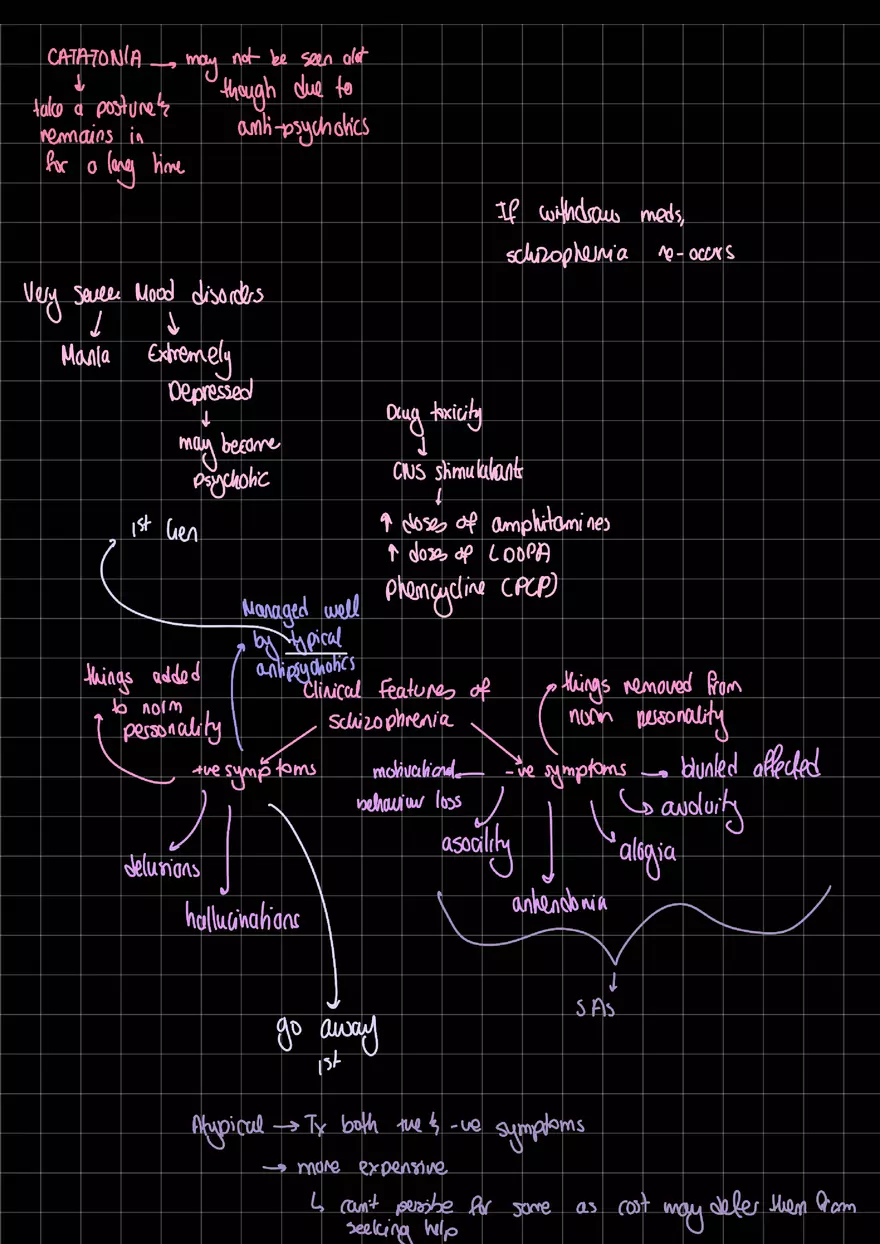 CATATONIA → may not be seen alot
though due to
anti-psychotics
↓
take a posture &
remains in
for a long time
If withdraws meds,
schizophrenia re-occurs
Very severe Mood disorders
Mania Extremely
Depressed
↓
may become
psychotic
Drug toxicity
↓
CNS stimulatants
↓
↑ doses of amphitamines
↑ doses of LDOPA
phencycline (PCP)
1st Gen
Managed well
by typical
antipsychotics
things added
to norm
personality
Clinical Features of
schizophrenia
things removed from
norm personality
+ve symptoms
-ve symptoms → blunted affected
motivational
behaviour loss
avoluity
asocility
alogia
delusions
anhendonia
hallucinations
SAs
go away
1st
Atypical → Tx both +ve & -ve symptoms
→ more expensive
↳ can't percibe for some as cost may defer them from
seeking help